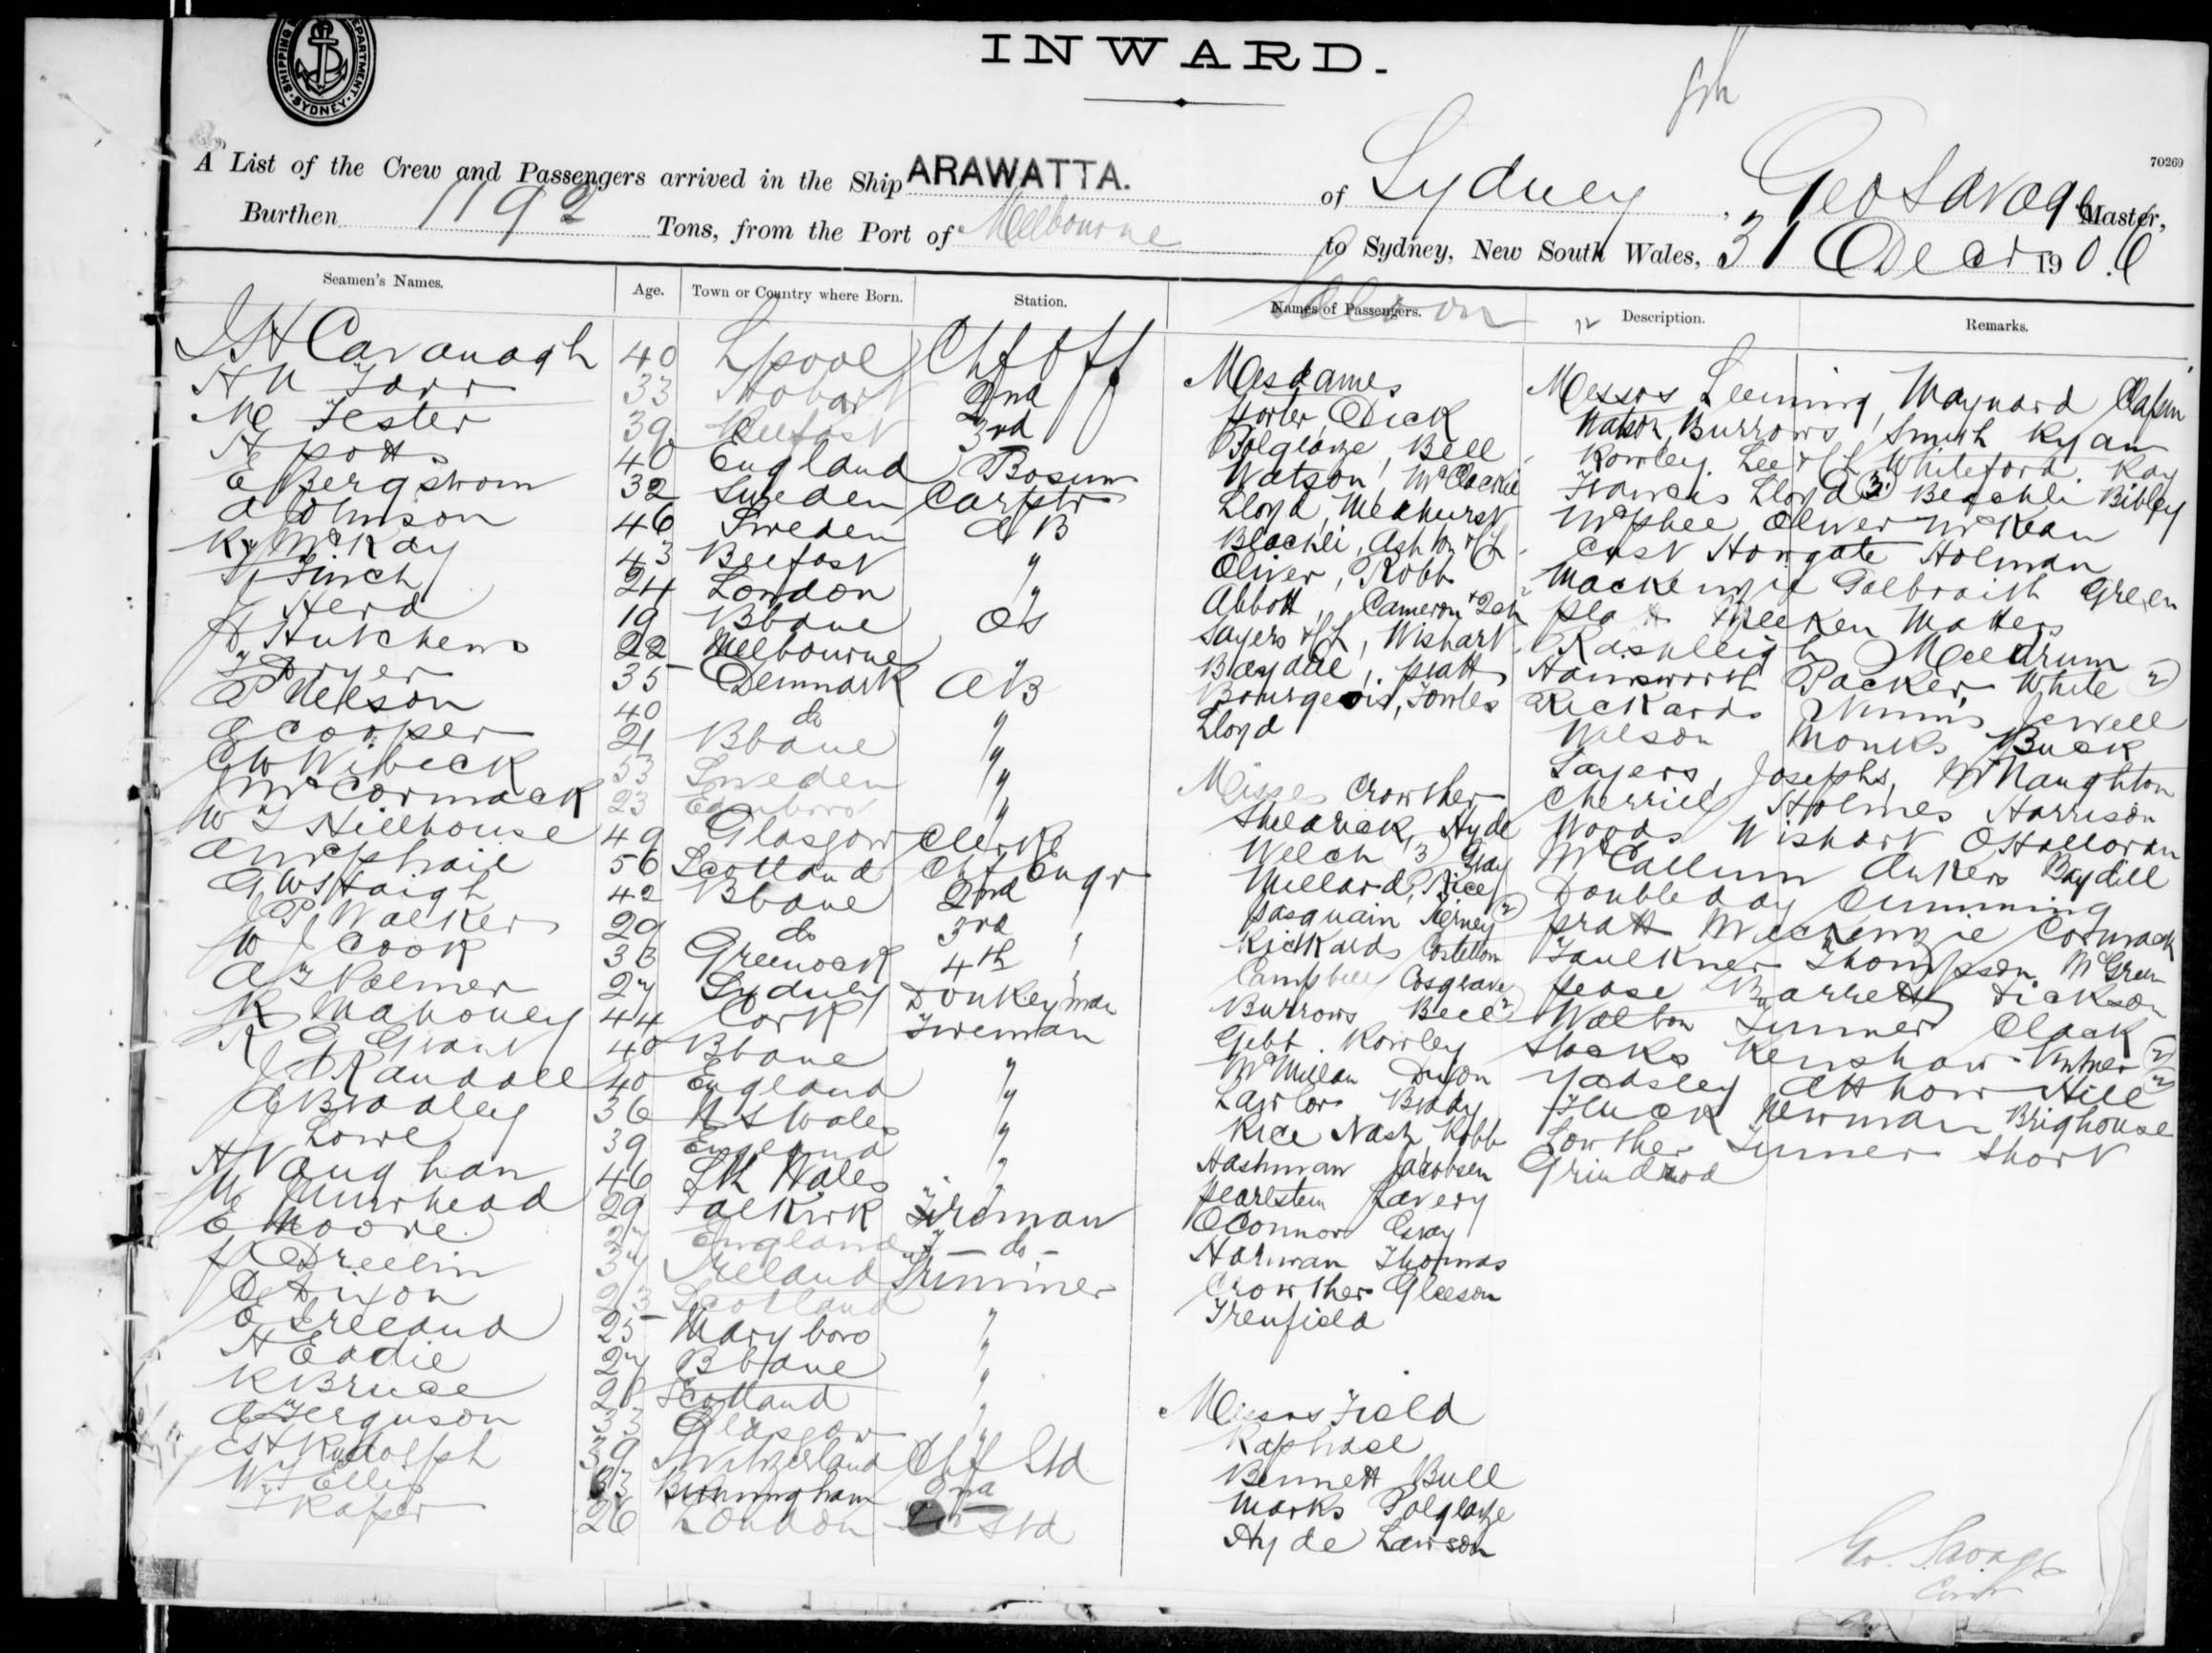 SHIPPING DEPARTMENT SYDNEY
INWARD.
70269
A List of the Crew and Passengers arrived in the Ship ARAWATTA. of Sydney, Geo Savage Master,
Burthen 1192 Tons, from the Port of Melbourne to Sydney, New South Wales, 31 Decr 1906
Seamen's Names. Age. Town or Country where Born. Station. Names of Passengers. Description. Remarks.
Saloon
J H Cavanagh 40 Lpool Chf Off
33 Hobart 2nd
Mc Fester 39 Belfast 3rd
A Potts 40 England Bosun
E Bergstrom 32 Sweden Carptr
A Johnson 46 Sweden AB
McKay 43 Belfast "
J Finch 24 London "
J Herd 19 Bbane OS
A Hutchens 22 Melbourne "
Dryer 35 Denmark AB
P Nelson 40 do "
E Cooper 21 Bbane "
C W Wibeck 53 Sweden "
J McCormack 23 Edinboro "
W J Hillhouse 49 Glasgow Clerk
A McPhail 56 Scotland Chf Engr
G W S Haigh 42 Bbane 2nd "
J P Walker 29 do 3rd "
W J Cook 33 Greenock 4th "
A J Palmer 27 Sydney Donkeyman
R Mahoney 44 Cork Fireman
R G Grant 40 Bbane "
J A Randall 40 England "
A Bradley 36 N S Wales "
J Lowe 39 England "
H Vaughan 46 Sth Wales "
M Muirhead 29 Falkirk Fireman
E Moore 27 England - do -
J Breelin 37 Ireland Trimmer
C Dixon 23 Scotland
E Ireland 25 Maryboro "
H Eadie 27 Bbane "
R Bruce 28 Scotland "
A Ferguson 33 Glasgow "
E H Rudolph 39 Switzerland Chf Std
W J Ellis 63 Birmingham 2nd
Raper 26 London Std
Mesdames
Horler, Dick
Polglaze, Bell
Watson, McClackie
Lloyd, Medhurst
Blachli, Ashton & Ch
Oliver, Robb
Abbott, Cameron & 2 Ch
Sayers & Ch, Wishart
Baydell, Pratt
Bourgeois, Fowles
Lloyd
Misses Crowther
Shedrick, Hyde
Welch (3) Gray
Millard, Rice
Pasquain Tierney (2)
Rickards Costellom
Campbell Cosgrave
Burrows Bell 2
Gebt. Rowley
McMillan Dixon
Lawlor Brady
Rice Nash Robb
Hashman Jacobsen
Pearlstein Favery
O'Connor Gray
Harwan Thomas
Crowther Gleeson
Trenfield
Messrs Field
Raphael
Bennett Bull
Marks Polglaze
Hyde Lawson
Messrs Leeming, Maynard
Watson, Burrows, Smith Ryan
Rowley. Lee & Ch Whiteford. Ray
Francis Lloyd (3) Beachli Bibley
McPhee Oliver McKean
Cust Howgate Holman
Mackenzie Galbraith Green
Meeken Matters
Rashleigh Meldrum
Hainsworth Packer White (2)
Rickards Nimmis Jewell
Wilson Monks Buck
Sayers, Josephs, McNaughton
Cherriel Holmes Harrison
Woods Wishart O'Halloran
McCallum Ankers Baydell
Doubleday Cumming
Pratt Mackenzie Cormack
Faulkner Thompson McGreen
Pease Barrett Dickson
Walton Turner Clack
Stocks Kershaw (2)
Yardsley Atthow Hill 2
Fluck Newman Brighouse
Lowther Turner Short
Grindrod
Geo. Savage